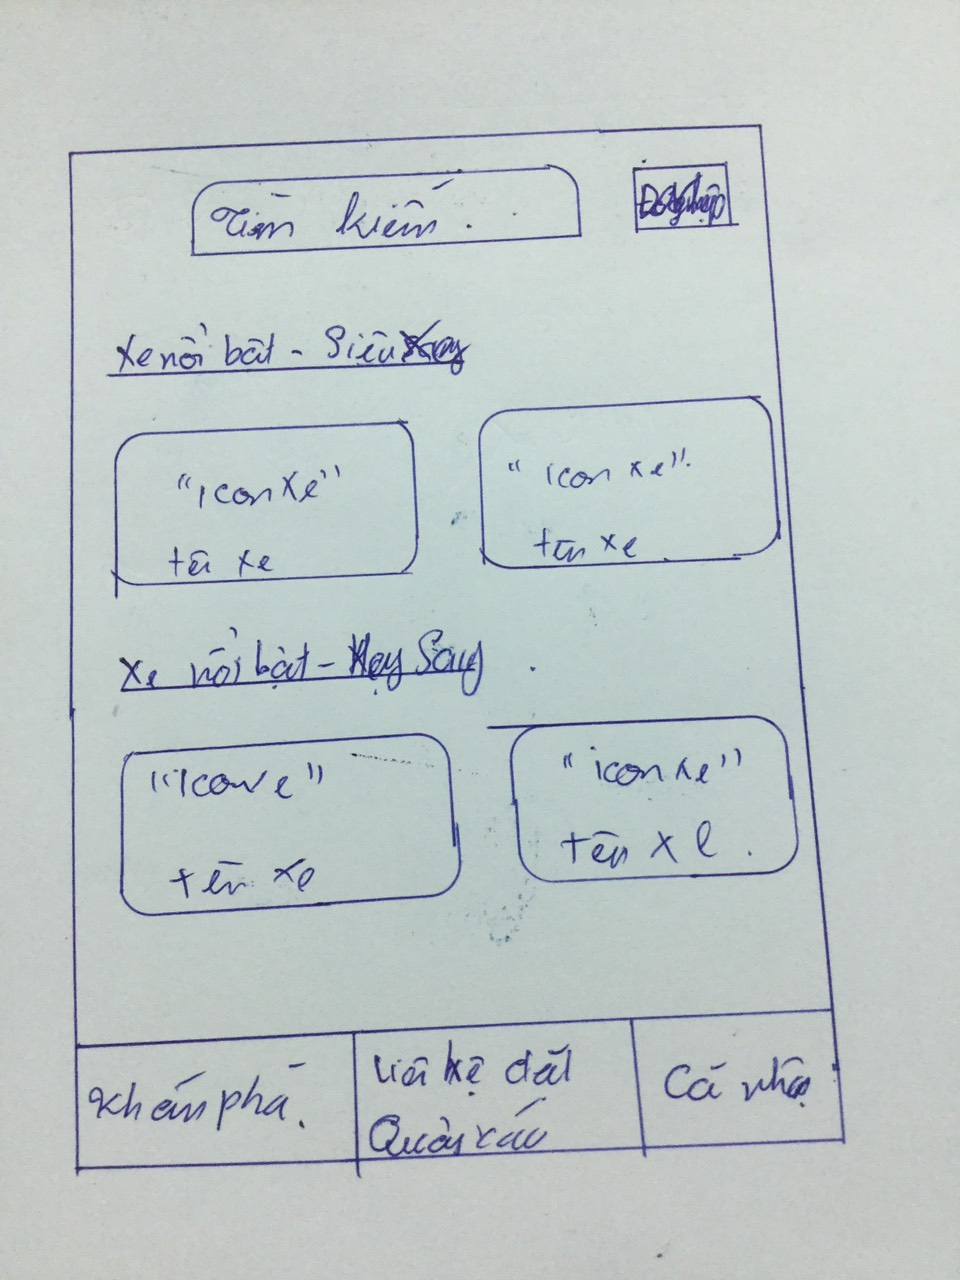 Tìm kiếm.
Xe nổi bật - Siêu
"icon xe"
tên xe
"icon xe"
tên xe
Xe nổi bật -
"icon xe"
tên xe
"icon xe"
tên xe.
Khám phá.
Liên hệ đặt
Quảng cáo
Cá nhân